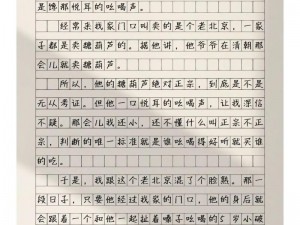 是馋那悦耳的吆喝声。
经常来我家门口叫卖的是个老北京，一家
子都是卖糖葫芦的。据他讲，他爷爷在清朝那
会儿就卖糖葫芦。
所以，他的糖葫芦绝对正宗，到底是不是
无从考证。但他一口悦耳的吆喝声，让我深信
不疑。那会儿我还小，还不懂什么叫正宗不正
宗，判断的唯一标准就是谁吆喝得好听就买谁
的吃。
于是，我跟这个老北京混了个脸熟。那一
段日子，只要他经过我家的门口，他的身后就
会跟着一个扣他一起扯着嗓子吆喝的5岁小破